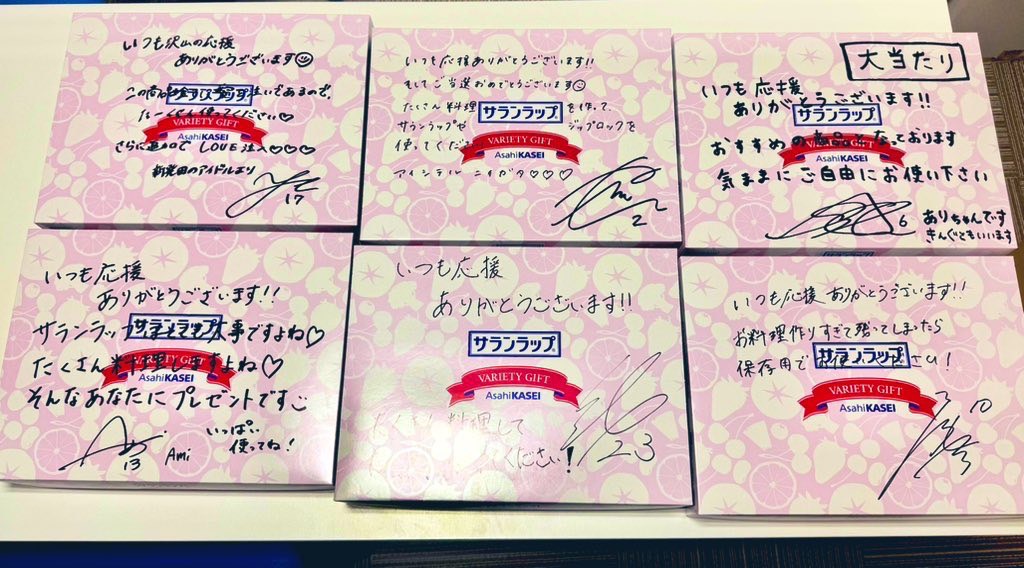 いつも沢山の応援
ありがとうございます☺
サランラップ
VARIETY GIFT
AsahiKASEI
さらに追加で LOVE注入♡♡♡
新発田のアイドルより
17
いつも応援ありがとうございます!!
そしてご当選おめでとうございます☺
たくさん料理を作って、
サランラップ
サランラップやジップロックを
使ってくだ
VARIETY GIFT
AsahiKASEI
アイシテル ニイガタ♡♡♡
2
大当たり
いつも応援
ありがとうございます!!
サランラップ
おすすめの商品となっております
VARIETY GIFT
AsahiKASEI
気ままにご自由にお使い下さい
6
ありちゃんです
きんぐともいいます
いつも応援
ありがとうございます!!
サランラップ
サランラップ 事ですよね♡
たくさん料理しますよね♡
VARIETY GIFT
AsahiKASEI
そんなあなたにプレゼントです
13
Ami
いっぱい
使ってね!
いつも応援
ありがとうございます!!
サランラップ
VARIETY GIFT
AsahiKASEI
たくさん料理して
ください!
23
いつも応援ありがとうございます!!
お料理作りすぎて残ってしまったら
サランラップ
保存用で ださい!
VARIETY GIFT
AsahiKASEI
10